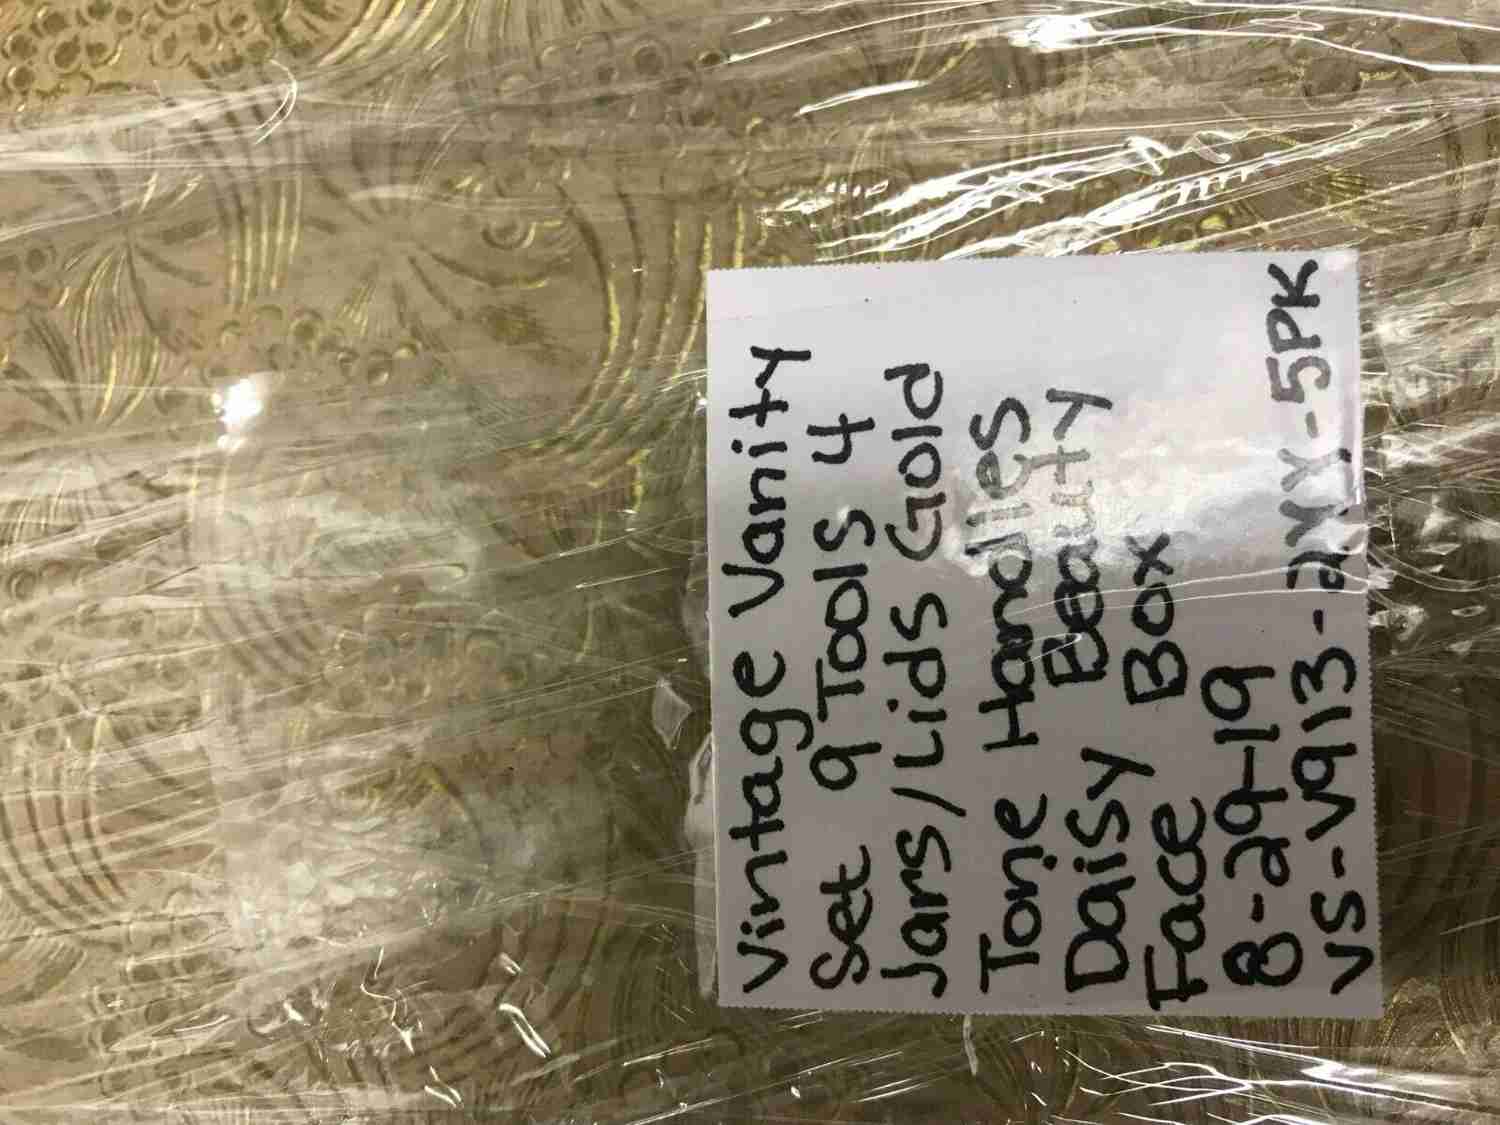 Vintage Vanity
Set 9 Tools 4
Jars/Lids Gold
Tone Handles
Daisy Beauty
Face Box
8-29-19
VS-V913-2YY-5PK